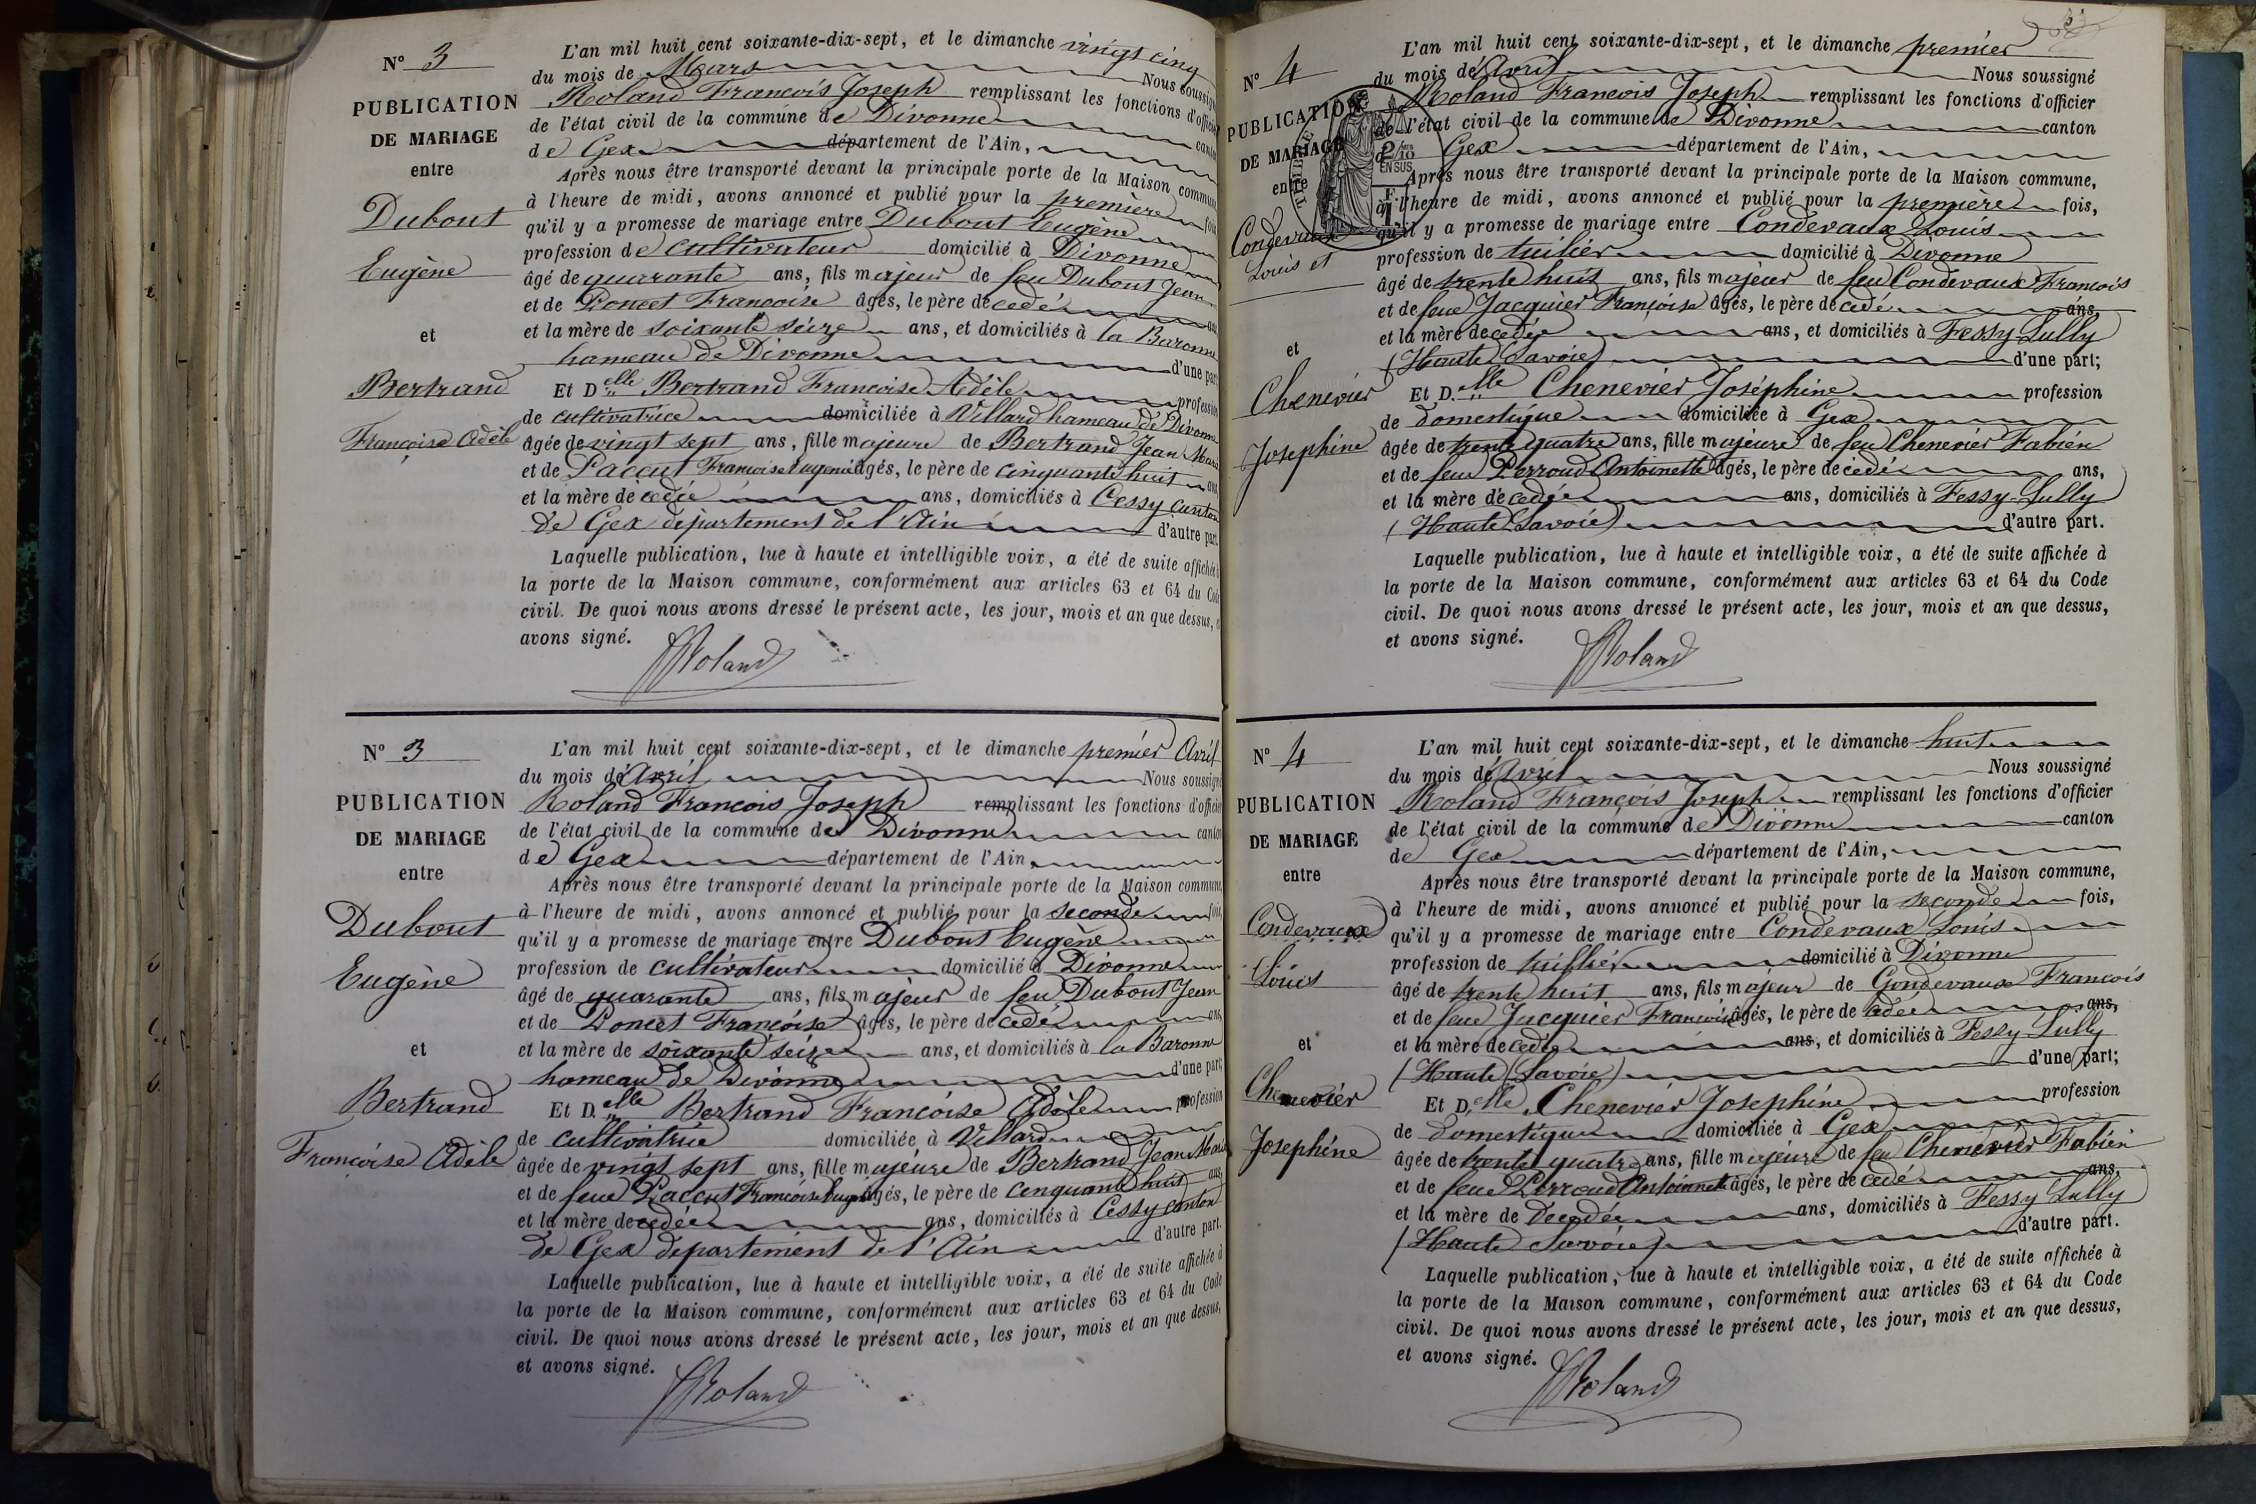 N° 3
PUBLICATION
DE MARIAGE
entre
Dubout
Eugène
et
Bertrand
Françoise Adèle
L'an mil huit cent soixante-dix-sept, et le dimanche vingt cinq
du mois de Mars Nous soussigné
Roland François Joseph remplissant les fonctions d'officier
de l'état civil de la commune de Divonne canton
de Gex département de l'Ain,
Après nous être transporté devant la principale porte de la Maison commune
à l'heure de midi, avons annoncé et publié pour la première fois
qu'il y a promesse de mariage entre Dubout Eugène
profession de cultivateur domicilié à Divonne
âgé de quarante ans, fils majeur de feu Dubout Jean
et de Poncet Françoise âgés, le père décedé ans
et la mère de soixante séize ans, et domiciliés à la Baronne
hameau de Divonne d'une part
Et D.elle Bertrand Françoise Adèle profession
de cultivatrice domiciliée à Villard hameau de Divonne
âgée de vingt sept ans, fille majeure de Bertrand Jean Marie
et de Paccut Françoise Eugenie âgés, le père de cinquante huit ans
et la mère décedée ans, domiciliés à Cessy canton
de Gex département de l'Ain d'autre part.
Laquelle publication, lue à haute et intelligible voix, a été de suite affichée à
la porte de la Maison commune, conformément aux articles 63 et 64 du Code
civil. De quoi nous avons dressé le présent acte, les jour, mois et an que dessus, e
avons signé.
Roland
N° 3
PUBLICATION
DE MARIAGE
entre
Dubout
Eugène
et
Bertrand
Françoise Adèle
L'an mil huit cent soixante-dix-sept, et le dimanche premier Avril
du mois d'Avril Nous soussigné
Roland François Joseph remplissant les fonctions d'officier
de l'état civil de la commune de Divonne canton
de Gex département de l'Ain,
Après nous être transporté devant la principale porte de la Maison commune,
à l'heure de midi, avons annoncé et publié pour la seconde fois,
qu'il y a promesse de mariage entre Dubout Eugène
profession de cultivateur domicilié à Divonne
âgé de quarante ans, fils majeur de feu Dubout Jean
et de Poncet Françoise âgés, le père décedé ans,
et la mère de soixante seize ans, et domiciliés à la Baronne
hameau de Divonne d'une part;
Et D.elle Bertrand Françoise Adèle profession
de cultivatrice domiciliée à Villard
âgée de vingt sept ans, fille majeure de Bertrand Jean Marie
et de feue Paccut Françoise Eugénie âgés, le père de cinquante huit ans,
et la mère decedée ans, domiciliés à Cessy canton
de Gex département de l'Ain d'autre part.
Laquelle publication, lue à haute et intelligible voix, a été de suite affichée à
la porte de la Maison commune, conformément aux articles 63 et 64 du Code
civil. De quoi nous avons dressé le présent acte, les jour, mois et an que dessus,
et avons signé.
Roland
N° 4
PUBLICATION
DE MARIAGE
entre
Condevaux
Louis et
et
Chenevier
Josephine
TIMBRE
2/10
EN SUS
L'an mil huit cent soixante-dix-sept, et le dimanche premier
du mois d'Avril Nous soussigné
Roland François Joseph remplissant les fonctions d'officier
de l'état civil de la commune de Divonne canton
de Gex département de l'Ain,
Après nous être transporté devant la principale porte de la Maison commune,
à l'heure de midi, avons annoncé et publié pour la première fois,
qu'il y a promesse de mariage entre Condevaux Louis
profession de tuilier domicilié à Divonne
âgé de trente huit ans, fils majeur de feu Condevaux François
et de feue Jacquier Françoise âgés, le père décedé ans,
et la mère decedée ans, et domiciliés à Fessy Lully
(Haute Savoie) d'une part;
Et D.elle Chenevier Joséphine profession
de domestique domiciliée à Gex
âgée de trente quatre ans, fille majeure de feu Chenevier Fabien
et de feue Perroud Antoinette âgés, le père décedé ans,
et la mère décedée ans, domiciliés à Fessy-Lully
(Haute Savoie) d'autre part.
Laquelle publication, lue à haute et intelligible voix, a été de suite affichée à
la porte de la Maison commune, conformément aux articles 63 et 64 du Code
civil. De quoi nous avons dressé le présent acte, les jour, mois et an que dessus,
et avons signé.
Roland
N° 4
PUBLICATION
DE MARIAGE
entre
Condevaux
Louis
et
Chenevier
Josephine
L'an mil huit cent soixante-dix-sept, et le dimanche huit
du mois d'Avril Nous soussigné
Roland François Joseph remplissant les fonctions d'officier
de l'état civil de la commune de Divonne canton
de Gex département de l'Ain,
Après nous être transporté devant la principale porte de la Maison commune,
à l'heure de midi, avons annoncé et publié pour la seconde fois,
qu'il y a promesse de mariage entre Condevaux Louis
profession de tuillier domicilié à Divonne
âgé de trente huit ans, fils majeur de Condevaux François
et de feue Jacquier Françoise âgés, le père de ans,
et la mère decedée ans, et domiciliés à Fessy Lully
(Haute Savoie) d'une part;
Et D.elle Chenevier Josephine profession
de domestique domiciliée à Gex
âgée de trente quatre ans, fille majeure de feu Chenevier Fabien
et de feue Perroud Antoinette âgés, le père decedé ans,
et la mère de Decedée ans, domiciliés à Fessy Lully
(Haute Savoie) d'autre part.
Laquelle publication, lue à haute et intelligible voix, a été de suite affichée à
la porte de la Maison commune, conformément aux articles 63 et 64 du Code
civil. De quoi nous avons dressé le présent acte, les jour, mois et an que dessus,
et avons signé.
Roland